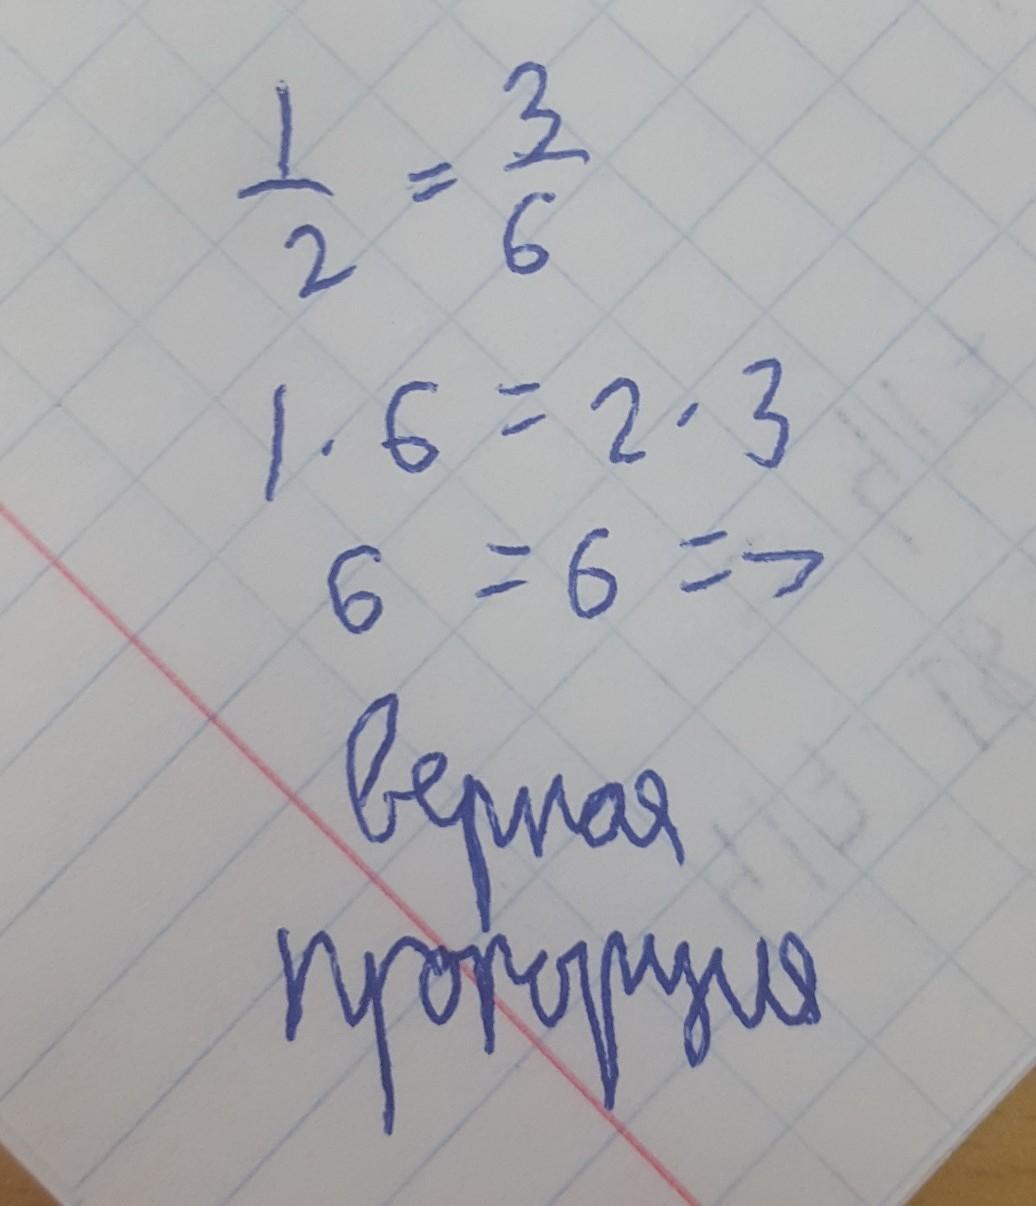 1/2 = 3/6
1 · 6 = 2 · 3
6 = 6 =>
верная
пропорция